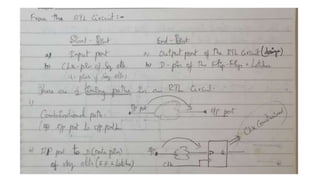 From the RTL Circuit:-
Start-Point End-Point
a) Input port a) Output port of the RTL Circuit (design)
b) Clk-pin of Seq elts b) D-pin of the Flip-Flops + Latches
There are 4 timing paths in an RTL Circuit.
1) I/p port
O/p port
Combinational path:
(I/p port to O/p port)
Clk (Combinational)
2) I/P port to D (data pin)
of seq elts (F.F & Latches)
I/p
D
Clk